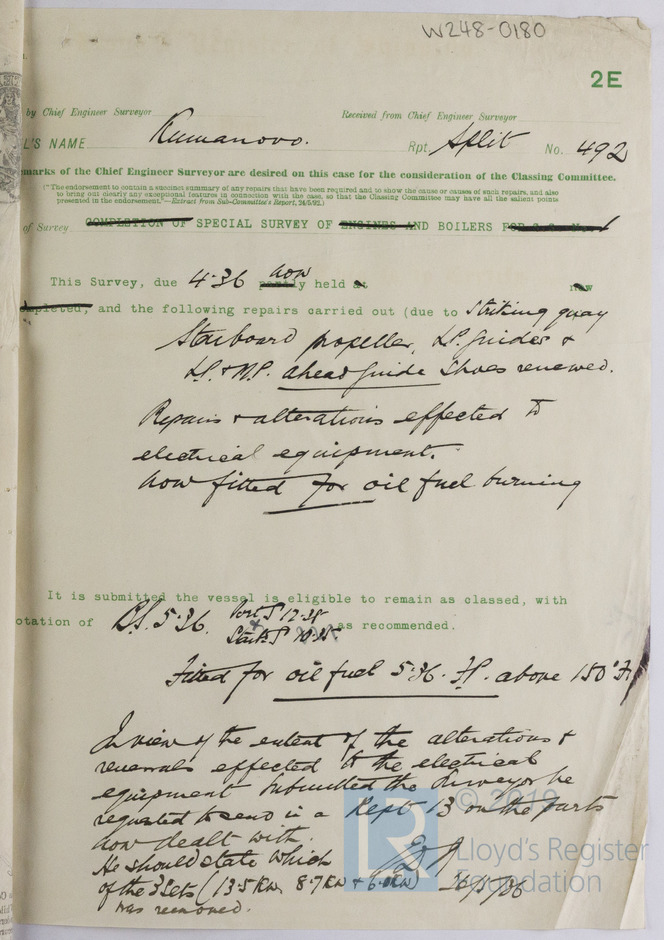 W248-0180
2E
by Chief Engineer Surveyor
Received from Chief Engineer Surveyor
L'S NAME Kumanovo. Rpt. Split No. 492
marks of the Chief Engineer Surveyor are desired on this case for the consideration of the Classing Committee.
("The endorsement to contain a succinct summary of any repairs that have been required and to show the cause or causes of such repairs, and also
to bring out clearly any exceptional features in connection with the case, so that the Classing Committee may have all the salient points
presented in the endorsement."—Extract from Sub-Committee's Report, 24/5/92.)
of Survey COMPLETION OF SPECIAL SURVEY OF ENGINES AND BOILERS
This Survey, due 4·36 now
partly held at now
completed, and the following repairs carried out (due to striking quay
Starboard propeller, L.P. guides &
L.P. & M.P. ahead guide shoes renewed.
Repairs & alterations effected to
electrical equipment.
now fitted for oil fuel burning
It is submitted the vessel is eligible to remain as classed, with
otation of B.S. 5·36. Port S 12·35
Starbd S 10·35 as recommended.
Fitted for oil fuel 5·36. F.P. above 150°F.
In view of the extent of the alterations &
renewals effected to the electrical
equipment submitted the Surveyor be
requested to send in a Rept 13 on the parts
now dealt with.
He should state which
of the 3 sets (13.5 KW, 8.7 KW & 6. KW)
was removed.
© 2019
LR
Lloyd's Register
Foundation